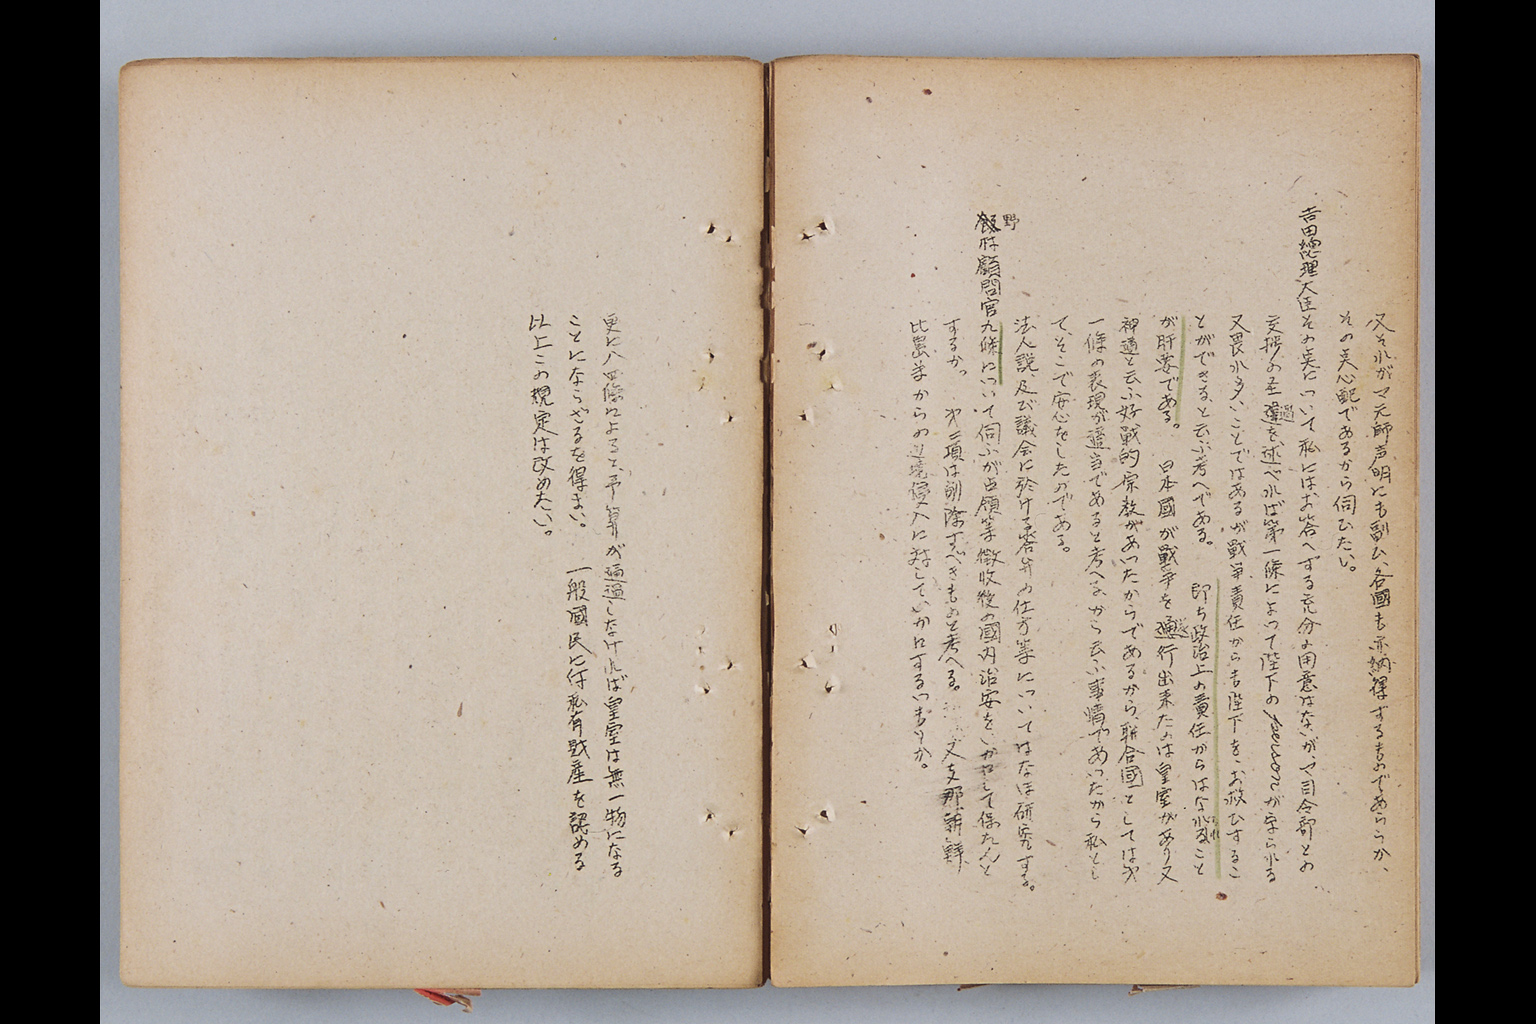 又それがマ元帥声明にも副ひ、各國も亦納得するものであらうか、
その点心配であるから伺ひたい。
吉田總理大臣 その点について私にはお答へする充分な用意はないが、マ司令部との
交捗の経過を述べれば第一條によつて陛下のpersonが守られる
又畏れ多いことではあるが戦争責任からも陛下をお救ひするこ
とができると云ふ考へである。即ち政治上の責任からはなれること
が肝要である。日本國が戦争を遂行出来たのは皇室があり又
神道と云ふ好戦的宗教があつたからであるから、聯合國としては第
一條の表現が適当であると考へながら云ふ事情であつたから私とし
て、そこで安心をしたのである。
法人説、及び議会に於ける答弁の仕方等についてはなほ研究する。
野
飯は顧問官 九條について伺ふが占領軍徴收後の國内治安をいかにして保たんと
するか。第二項は削除すべきものと考へる。又支那、朝鮮、
比島等からの辺境侵入に対していかにするつもりか。
更に八四條によると、予算が通過しなければ皇室は無一物になる
ことにならざるを得まい。一般國民には私有財産を認める
以上この規定は改めたい。